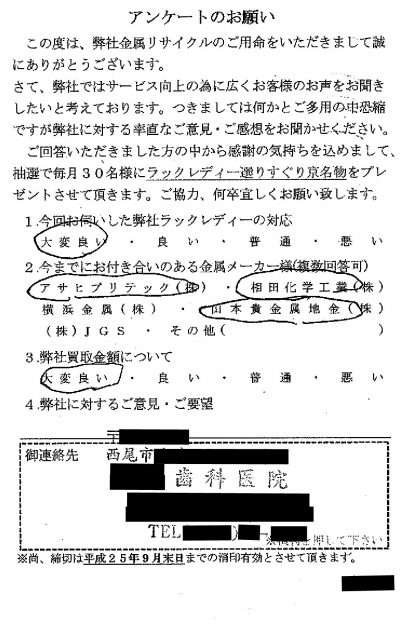 アンケートのお願い
この度は、弊社金属リサイクルのご用命をいただきまして誠
にありがとうございます。
さて、弊社ではサービス向上の為に広くお客様のお声をお聞き
したいと考えております。つきましては何かとご多用の中恐縮
ですが弊社に対する率直なご意見・ご感想をお聞かせください。
ご回答いただきました方の中から感謝の気持ちを込めまして、
抽選で毎月30名様にラックレディー選りすぐり京名物をプレ
ゼントさせて頂きます。ご協力、何卒宜しくお願い致します。
1.今回お伺いした弊社ラックレディーの対応
大変良い ・ 良い ・ 普通 ・ 悪い
2.今までにお付き合いのある金属メーカー様(複数回答可)
アサヒプリテック(株) ・ 相田化学工業(株)
横浜金属(株) ・ 山本貴金属地金(株)
(株)JGS ・ その他( )
3.弊社買取金額について
大変良い ・ 良い ・ 普通 ・ 悪い
4.弊社に対するご意見・ご要望
〒
御連絡先 西尾市
歯科医院
TEL( )
を押して下さい
※尚、締切は平成25年9月末日までの消印有効とさせて頂きます。